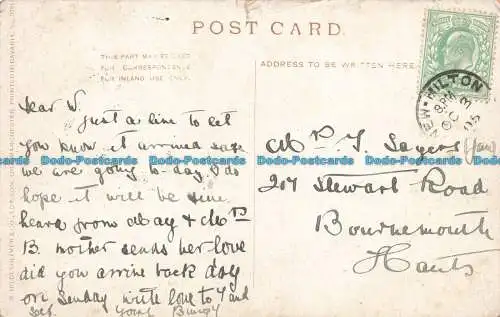 POST CARD.
THIS PART MAY BE USED
FOR CORRESPONDENCE
FOR INLAND USE ONLY.
ADDRESS TO BE WRITTEN HERE.
Dear W.
Just a line to let
you know it arrived safe
we are going to-day. I do
hope it will be fine
heard from May &
B. mother sends her love
did you arrive back day
on Sunday write love to Y and
self. Your
NEW-MILTON
8 PM
OC 3
05
Sayers
217 Stewart Road
Bournemouth
Hants
Dodo-Postcards Dodo-Postcards Dodo-Postcards Dodo-Postcards Dodo-Postcards